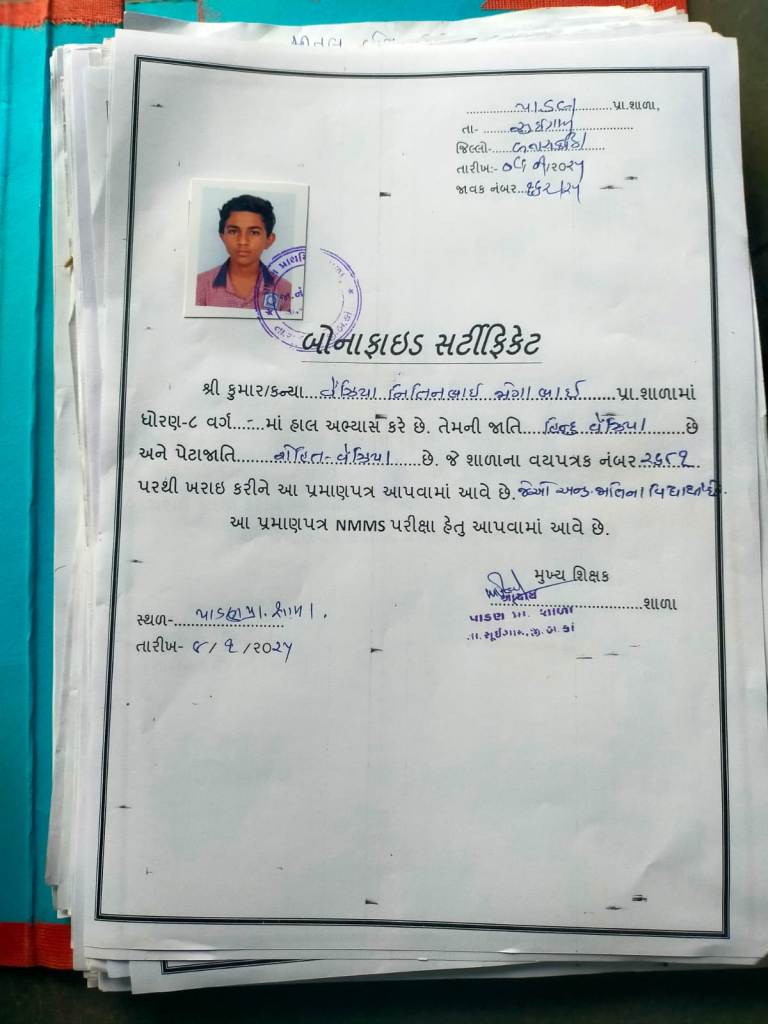 પાડણ પ્રા.શાળા,
તા- સુઈગામ
જિલ્લો- બનાસકાંઠા
તારીખ:- /૨૦૨૫
જાવક નંબર
બોનાફાઇડ સર્ટીફિકેટ
શ્રી કુમાર/કન્યા નિતિનભાઈ ભાઈ પ્રા.શાળામાં
ધોરણ-૮ વર્ગ......માં હાલ અભ્યાસ કરે છે. તેમની જાતિ હિન્દુ છે
અને પેટાજાતિ છે. જે શાળાના વયપત્રક નંબર
પરથી ખરાઇ કરીને આ પ્રમાણપત્ર આપવામાં આવે છે.
આ પ્રમાણપત્ર NMMS પરીક્ષા હેતુ આપવામાં આવે છે.
મુખ્ય શિક્ષક
શાળા
આચાર્ય
પાડણ પ્રા. શાળા
તા. સૂઈગામ, જી. બ. કાં
સ્થળ- પાડણ પ્રા. શાળા.
તારીખ- /૧/૨૦૨૫